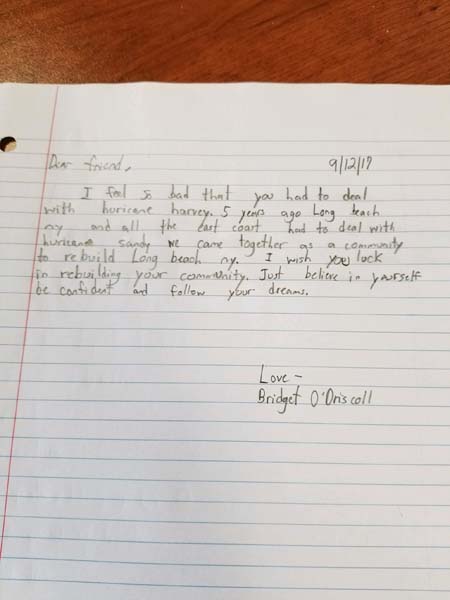 Dear friend,
9/12/17
I feel so bad that you had to deal
with huricane harvey. 5 years ago Long beach
ny and all the east coast had to deal with
hurricane sandy we came together as a community
to rebuild Long beach ny. I wish you luck
in rebuilding your community. Just believe in yourself
be confident and follow your dreams.
Love -
Bridget O'Driscoll